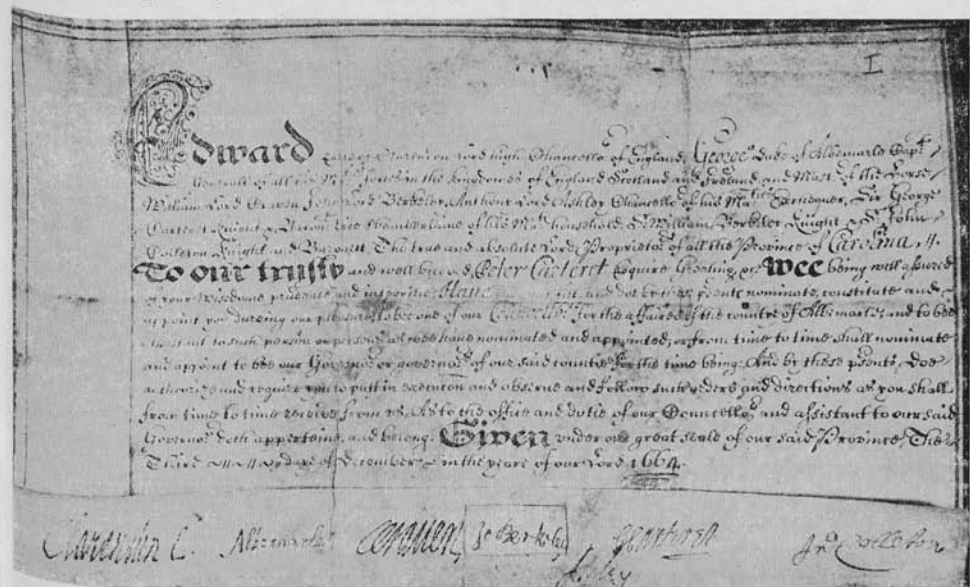 I
Edward Earle of Clarendon Lord high Chancellor of England, George Duke of Albemarle Capt
Generall of all his Ma forces in the Kingdomes of England Scotland and Ireland and Mast of the Horse
William Lord Craven John Lord Berkeley Anthony Lord Ashley Chancellor of his Ma Exchequer, Sir George
Carteret Knight & Baronet Vice Chamberlaine of his Ma household, Sr William Berkeley Knight & Sr John
Colleton Knight and Baronett The true and absolute Lords Proprietors of all the Province of Carolina
To our trusty and well beloved Peter Carteret Esquire Greeting Wee being well assured
of your wisdome prudence and integritie Have and doe by these psents nominate, constitute and
appoint you during our pleasure to bee one of our Councello for the affaires of the countie of Albemarle, and to bee
assistant to such person or persons as wee have nominated and appointed, or from time to time shall nominate
and appoint to bee our Governor or governors of our said countie for the time being. And by these psents, Doe
authorize and require you to putt in execution and observe and follow such orders and directions as you shall
from time to time receive from us, As to the office and dutie of our Councello and assistant to our said
Governor doth appertaine and belong. Given under our great seale of our said Province The
Third day of December in the yeare of our Lord 1664
Clarendon C. Albemarle Craven Jo Berkeley G Carteret Jn Colleton
Ashley